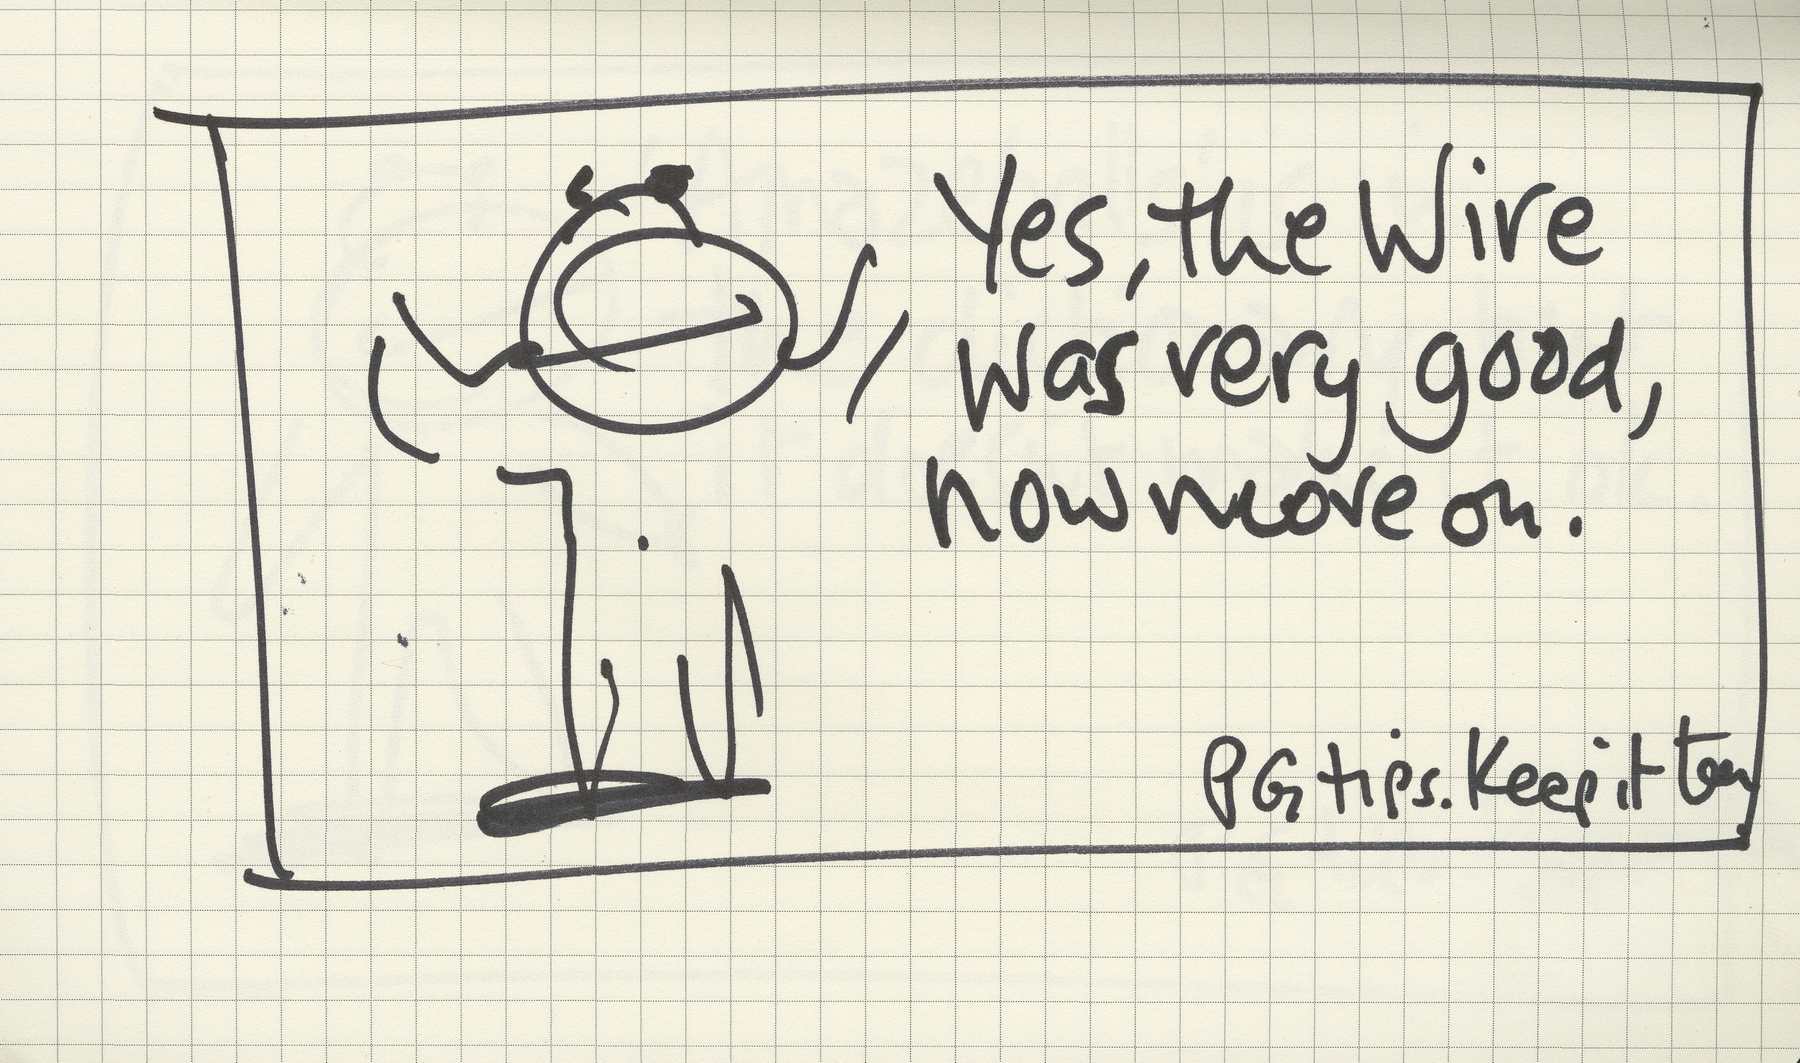 Yes, the Wire
was very good,
now move on.
PG tips. Keep it